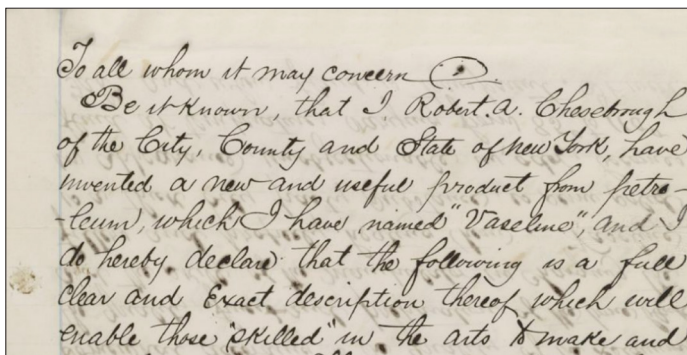 To all whom it may concern
Be it Known, that I, Robert. A. Chesebrough
of the City, County and State of New York, have
invented a new and useful product from petro-
-leum, which I have named "Vaseline", and I
do hereby declare that the following is a full
clear and Exact description thereof which will
enable those "skilled" in the arts to make and